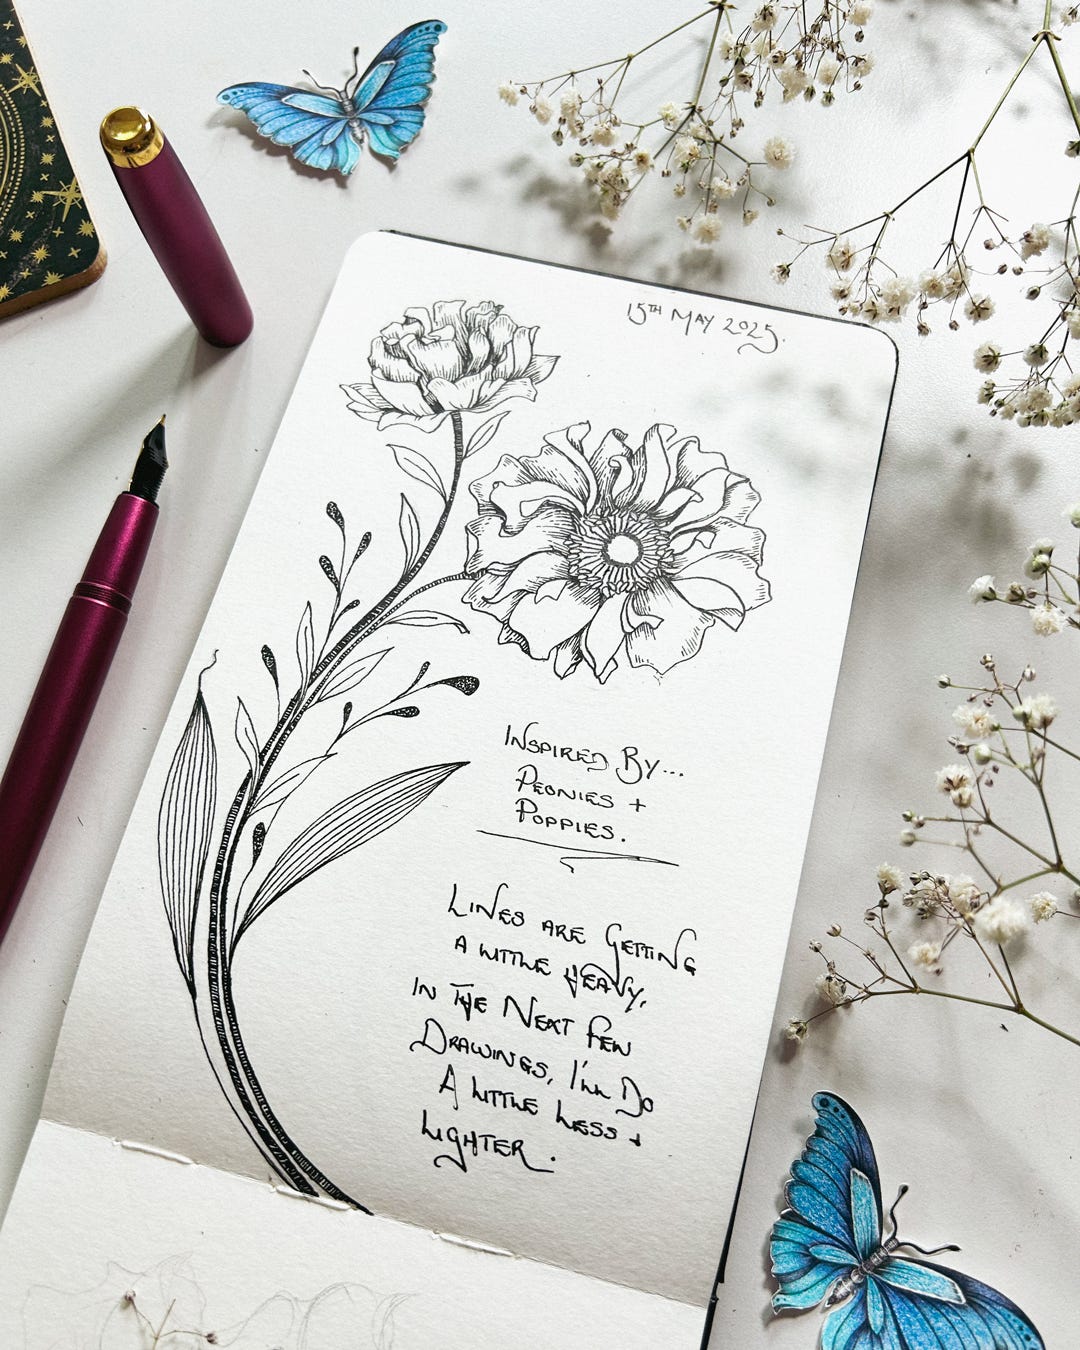 15TH MAY 2025.
INSPIRED BY...
PEONIES +
POPPIES.
LINES ARE GETTING
A LITTLE HEAVY,
IN THE NEXT FEW
DRAWINGS, I'LL DO
A LITTLE LESS +
LIGHTER.